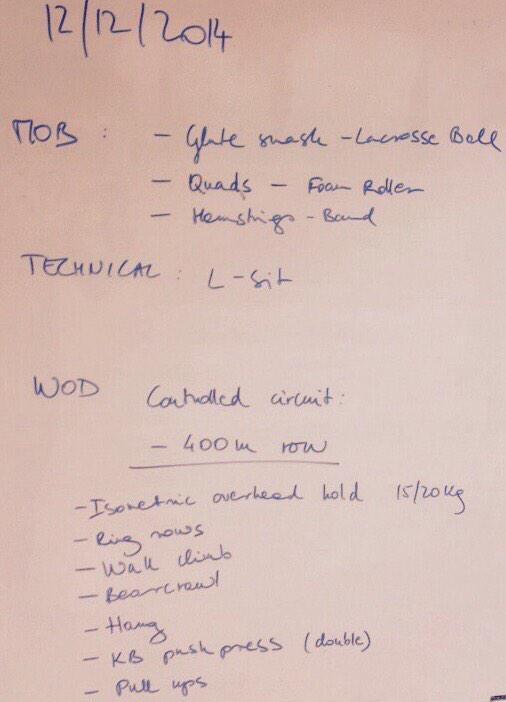 12/12/2014
MOB : - Glute smash - Lacrosse Ball
- Quads - Foam Roller
- Hamstrings - Band
TECHNICAL : L-Sit
WOD Controlled circuit:
- 400m row
- Isometric overhead hold 15/20kg
- Ring rows
- Wall climb
- Bearcrawl
- Hang
- KB push press (double)
- Pull ups